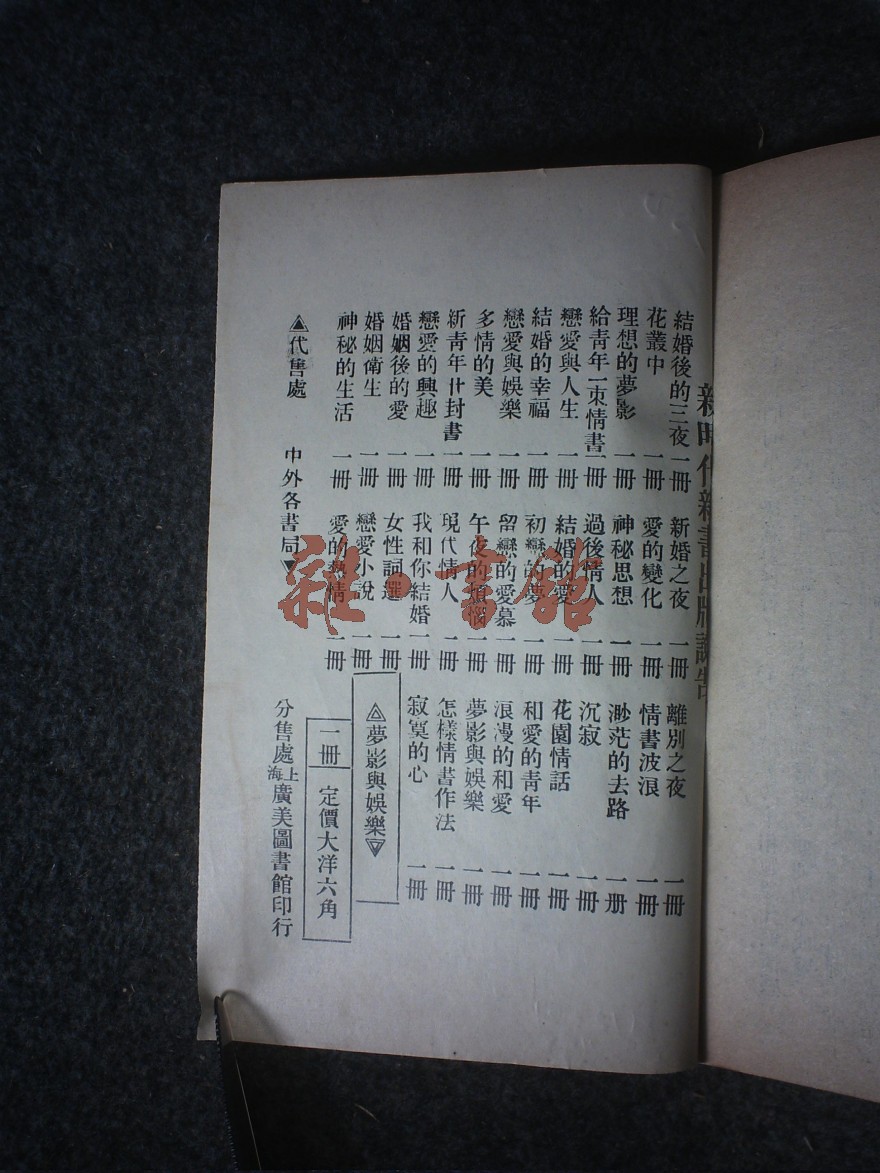 新時代新書出版謹告
結婚後的三夜 一冊 新婚之夜 一冊 離別之夜 一冊
花叢中 一冊 愛的變化 一冊 情書波浪 一冊
理想的夢影 一冊 神秘思想 一冊 渺茫的去路 一册
給青年一束情書 一冊 過後情人 一冊 沉寂 一冊
戀愛與人生 一冊 結婚的愛 一冊 花園情話 一冊
結婚的幸福 一冊 初戀的夢 一冊 和愛的青年 一冊
戀愛與娛樂 一冊 留戀的愛慕 一冊 浪漫的和愛 一冊
多情的美 一冊 午夜的煩惱 一冊 夢影與娛樂 一冊
新青年廿封書 一冊 現代情人 一冊 怎樣情書作法 一冊
戀愛的興趣 一冊 我和你結婚 一冊 寂寞的心 一冊
婚姻後的愛 一冊 女性詞選 一冊
婚姻衛生 一冊 戀愛小說 一冊
神秘的生活 一冊 愛的熱情 一冊
△夢影與娛樂▽
一冊 定價大洋六角
▲代售處 中外各書局▼
分售處 上海 廣美圖書館印行
雜·書館